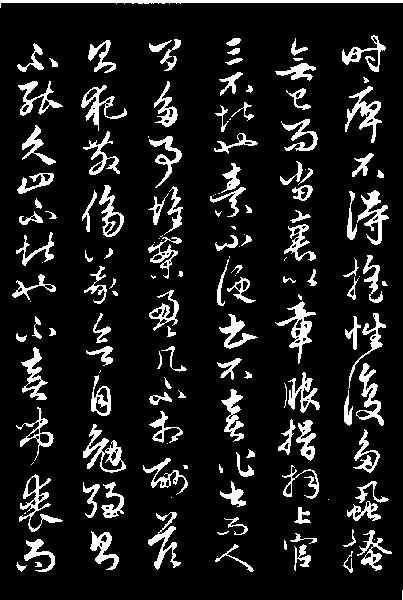 時痺不得搖性復多蝨搔
無已而當裹以章服揖拜上官
三不堪也素不便書不喜作書而人
間多事堆案盈几不相酬答
則犯教傷義欲自勉強則
不能久四不堪也不喜弔喪而